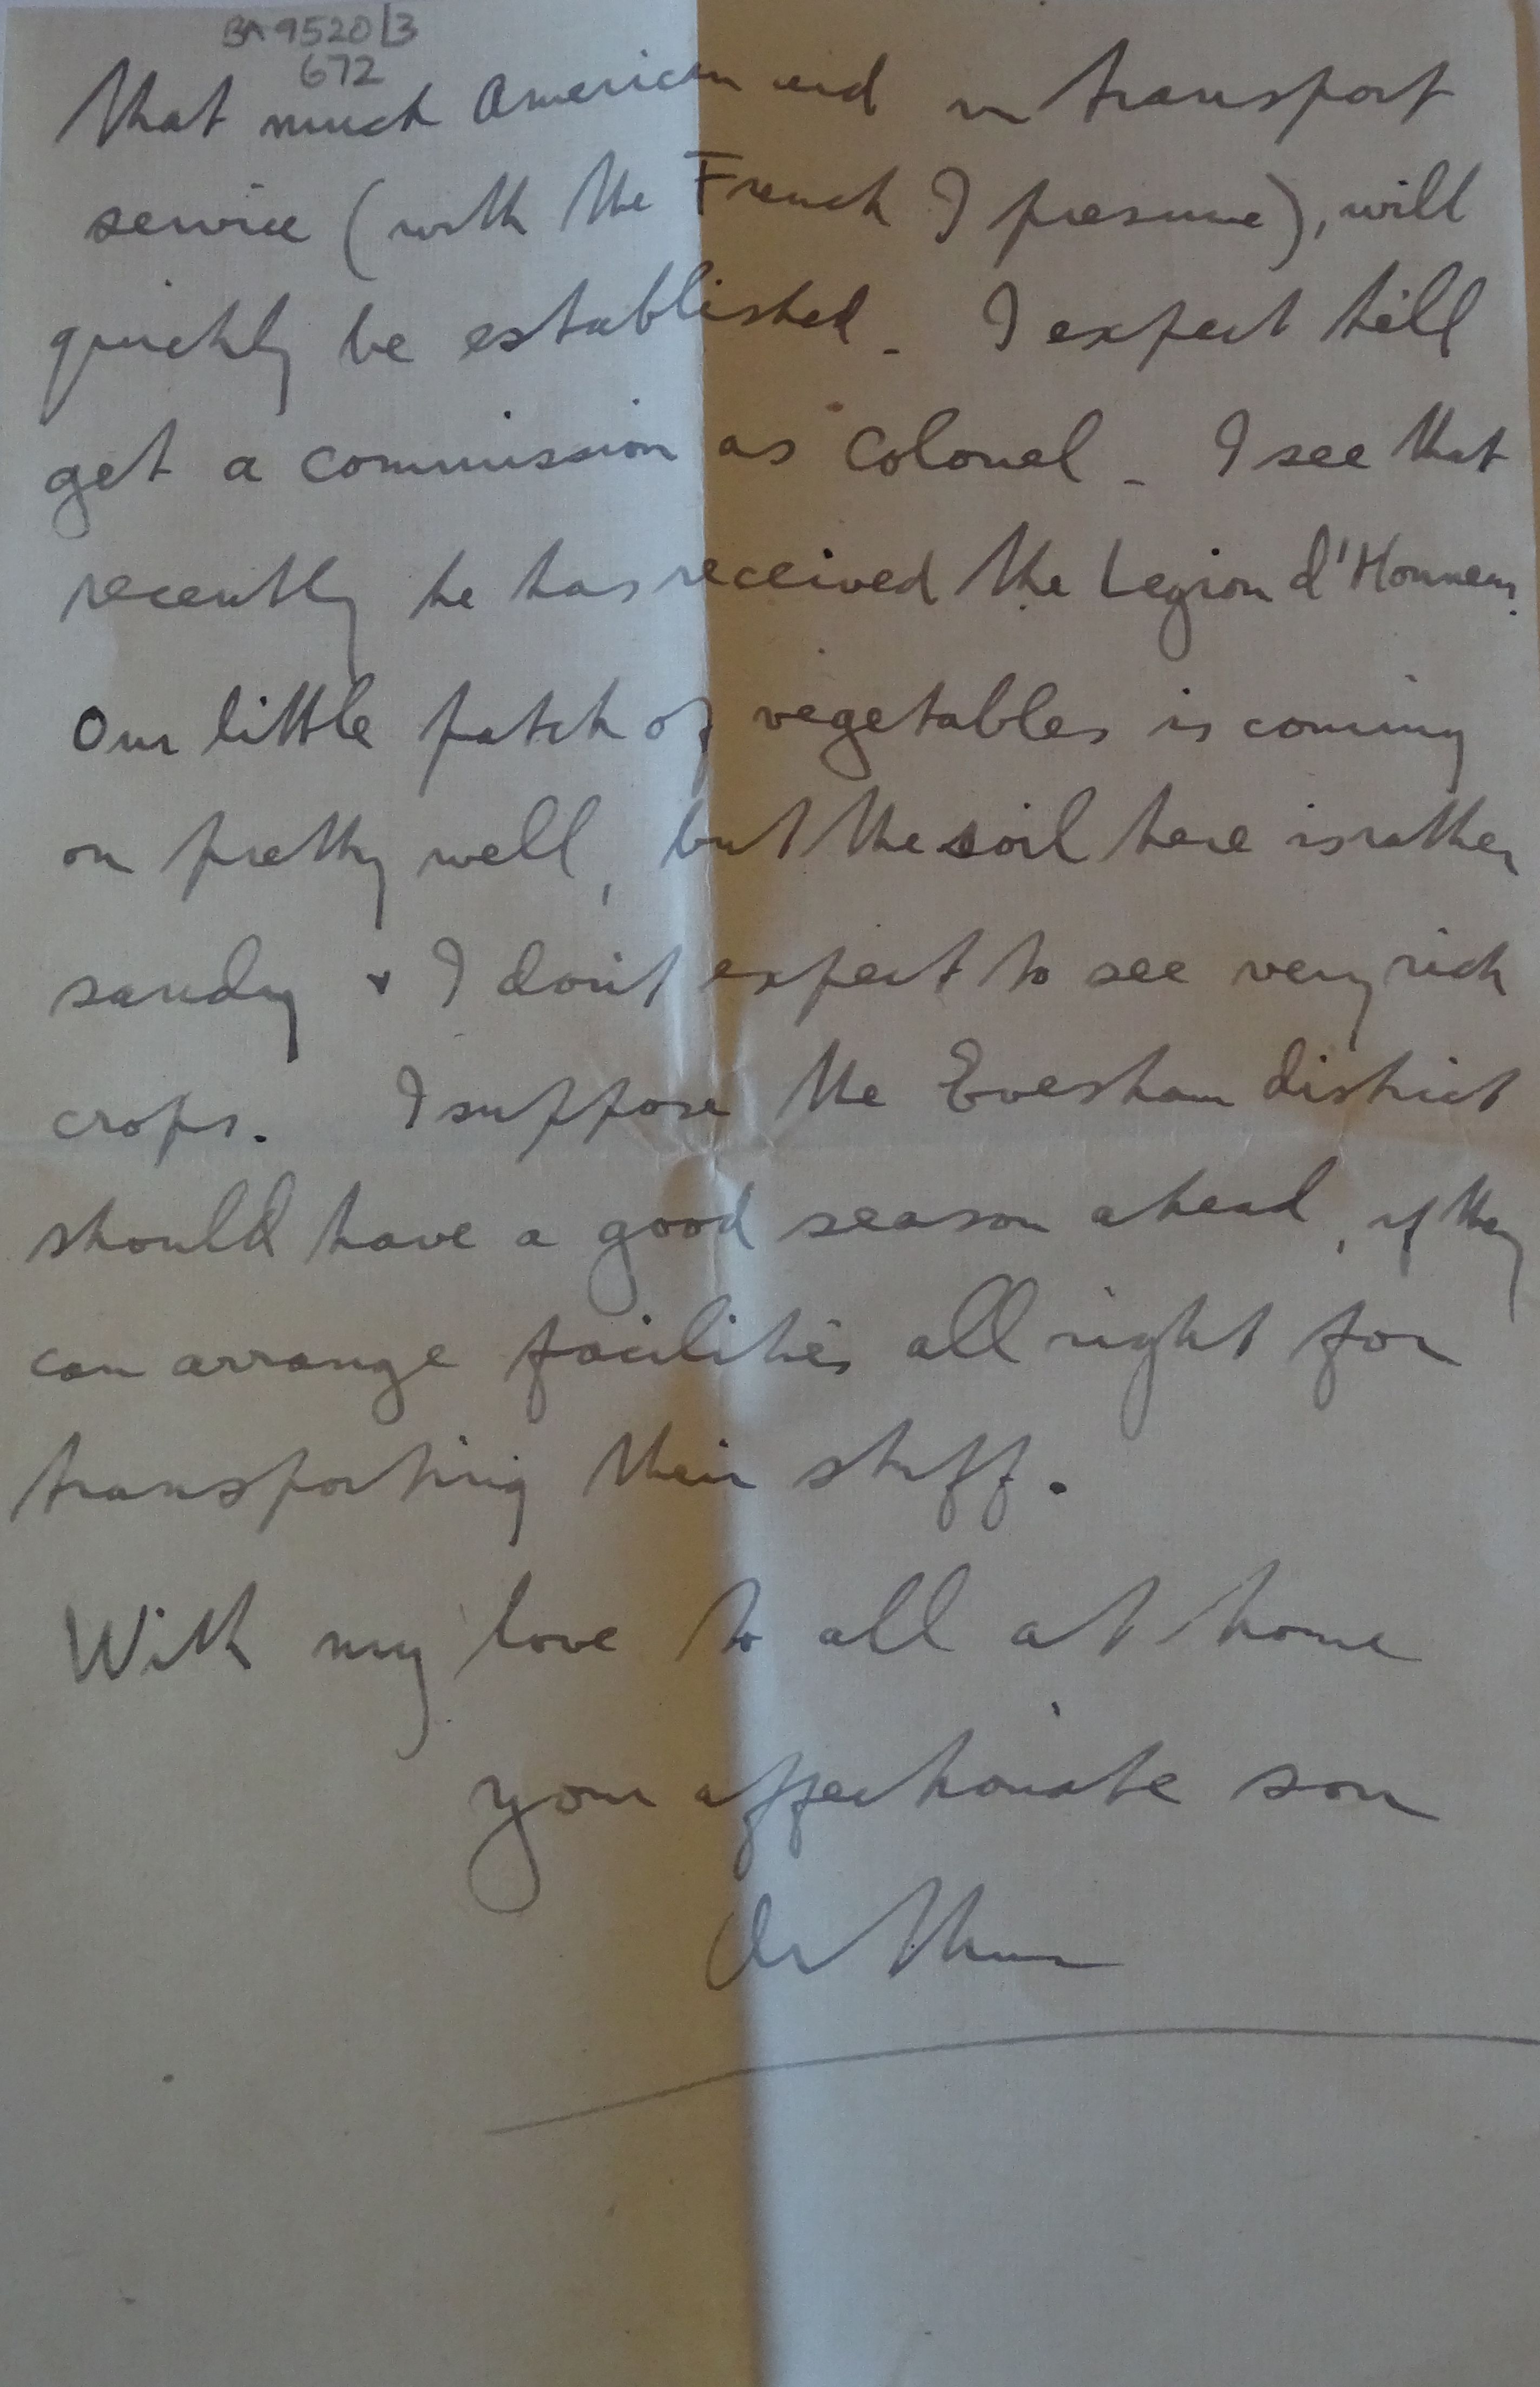 BA 9520/3
672
that much American aid in transport
service (with the French I presume), will
quickly be established. I expect he'll
get a commission as Colonel. I see that
recently he has received the Legion d'Honneur.
Our little patch of vegetables is coming
on pretty well, but the soil here is rather
sandy & I don't expect to see very rich
crops. I suppose the Evesham district
should have a good season ahead, if they
can arrange facilities all right for
transporting their stuff.
With my love to all at home
your affectionate son
Arthur